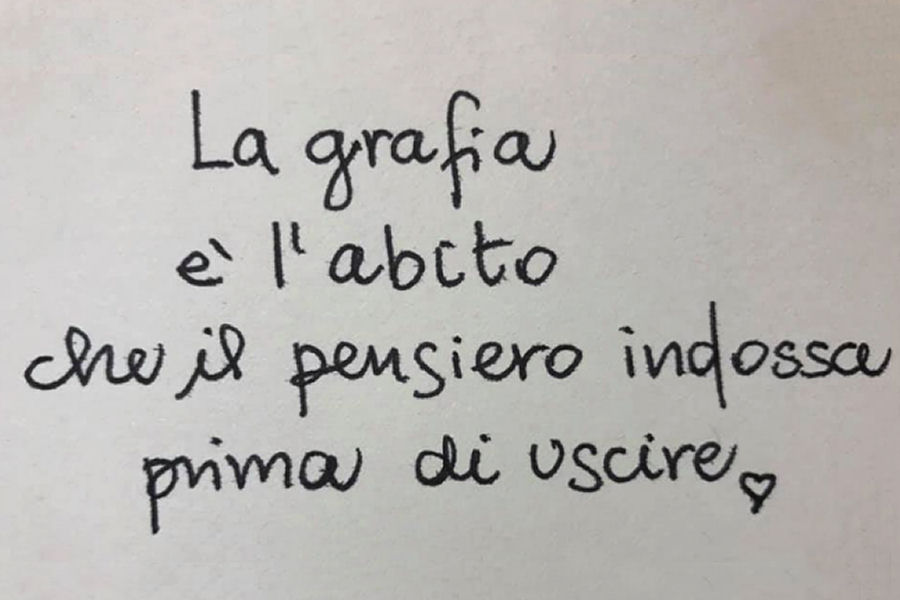 La grafia
è l'abito
che il pensiero indossa
prima di uscire ♡